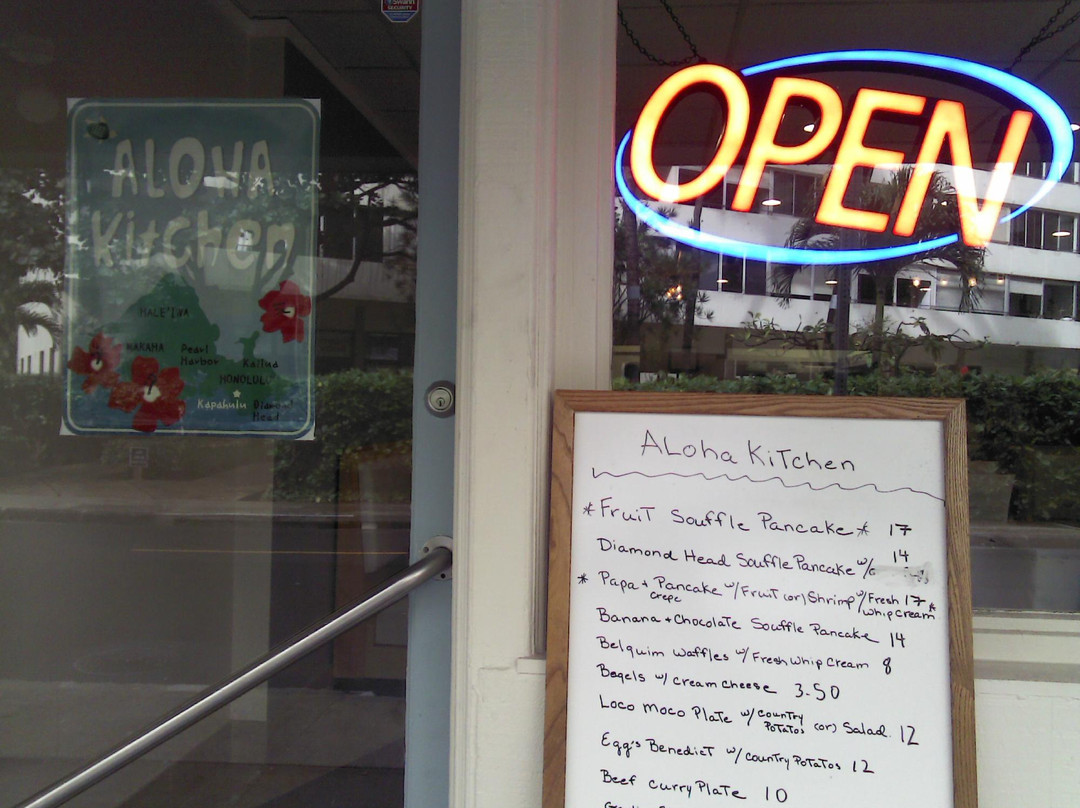 Swann
SECURITY
ALOHA
Kitchen
HALE'IWA
WAHAWA
Pearl
Harbor
Kailua
HONOLULU
Kapahulu
Diamond
Head
OPEN
ALoha KiTchen
*FruiT Souffle Pancake* 17
Diamond Head Souffle Pancake w/ 14
* Papa + Pancake w/Fruit (or) Shrimp w/Fresh 17 *
crepe whip cream
Banana + Chocolate Souffle Pancake 14
Belquim Waffles w/ Fresh whip cream 8
Begels w/ cream cheese 3.50
Loco moco Plate w/ country
PoTaTos (or) Salad. 12
Egg's BenedicT w/ counTry PoTaTos 12
Beef curry PlaTe 10